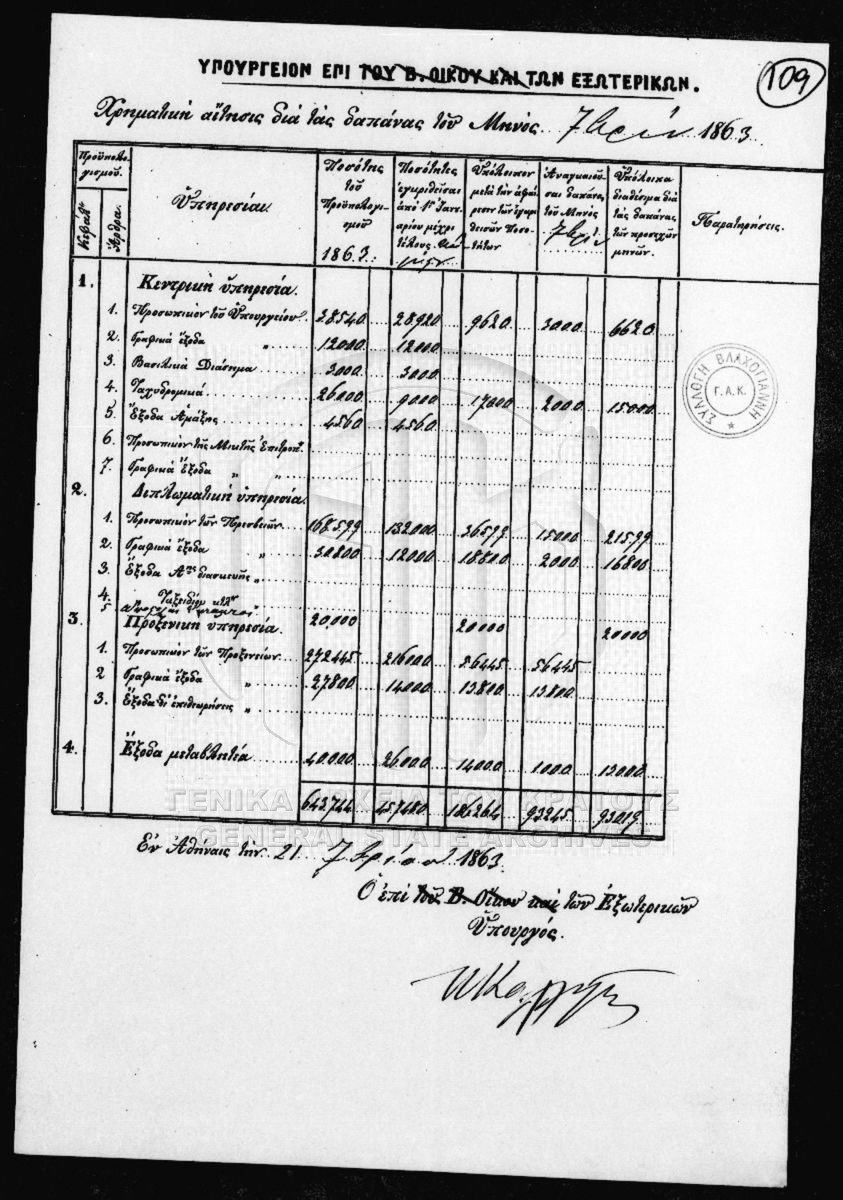 109
ΥΠΟΥΡΓΕΙΟΝ ΕΠΙ ΤΟΥ Β. ΟΙΚΟΥ ΚΑΙ ΤΩΝ ΕΞΩΤΕΡΙΚΩΝ.
Χρηματικὴ αἴτησις διὰ τὰς δαπάνας τοῦ Μηνὸς 7βρίου 1863
Προϋπολογισμοῦ. Ὑπηρεσίαι. Ποσότης τοῦ Προϋπολογισμοῦ 1863. Ποσότητες ἐγκριθεῖσαι ἀπὸ 1ης Ἰανουαρίου μέχρι τέλους Ὑπόλοιπον μετὰ τὴν ἀφαίρεσιν τῶν ἐγκριθεισῶν Ποσοτήτων Ἀναγκαιοῦσαι δαπάναι τοῦ Μηνὸς 7βρίου Ὑπόλοιπα διαθέσιμα διὰ τὰς δαπάνας τῶν προσεχῶν μηνῶν. Παρατηρήσεις.
Κεφάλ. Ἄρθρα.
1. Κεντρικὴ ὑπηρεσία.
1. Προσωπικὸν τοῦ Ὑπουργείου. 38540 28920 9620 3000 6620
2. Γραφικὰ ἔξοδα „ 12000 12000
3. Βασιλικὰ Διάσημα 3000 3000
4. Ταχυδρομικά 26000 9000 17000 2000 15000
5. Ἔξοδα Ἁμάξης 4560 4560
6. Προσωπικὸν τῆς Μικτῆς Ἐπιτροπ.
7. Γραφικὰ Ἔξοδα „ „
2. Διπλωματικὴ ὑπηρεσία.
1. Προσωπικὸν τῶν Πρεσβειῶν 168599 132000 36599 15000 21599
2. Γραφικὰ ἔξοδα „ 30800 12000 18800 2000 16800
3. Ἔξοδα διασκευῆς „
4. Ταξειδίου κτλ
5 20,000 20000 20000
3. Προξενικὴ ὑπηρεσία.
1. Προσωπικὸν τῶν Προξενείων 272445 216000 56445 56445
2 Γραφικὰ ἔξοδα „ 27800 14000 13800 13800
3. Ἔξοδα δι' ἐπιθεωρήσεις „
4. Ἔξοδα μεταβλητά 40000 26000 14000 1000 13000
643744 457480 186264 93245 93019
ΣΥΛΛΟΓΗ ΒΛΑΧΟΓΙΑΝΝΗ
Γ.Α.Κ.
ΓΕΝΙΚΑ ΑΡΧΕΙΑ ΤΟΥ ΚΡΑΤΟΥΣ
GENERAL STATE ARCHIVES
Ἐν Ἀθήναις τὴν 21 7βρίου 1863.
Ὁ ἐπὶ τοῦ Β. Οἴκου καὶ τῶν Ἐξωτερικῶν
Ὑπουργός.